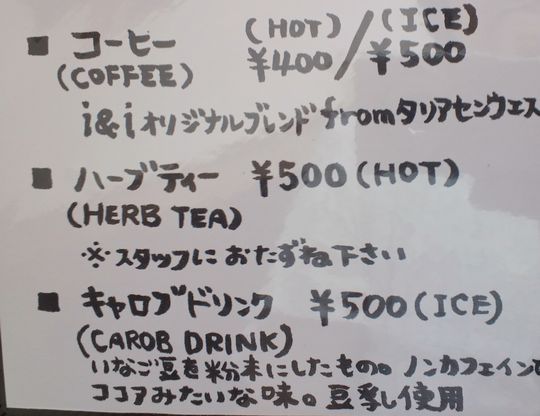 ■ コーヒー (HOT) ¥400 / (ICE) ¥500
(COFFEE)
i&iオリジナルブレンドfromタリアセンウエス
■ ハーブティー ¥500(HOT)
(HERB TEA)
※スタッフにおたずね下さい
■ キャロブドリンク ¥500(ICE)
(CAROB DRINK)
いなご豆を粉末にしたもの。ノンカフェインで
ココアみたいな味。豆乳使用